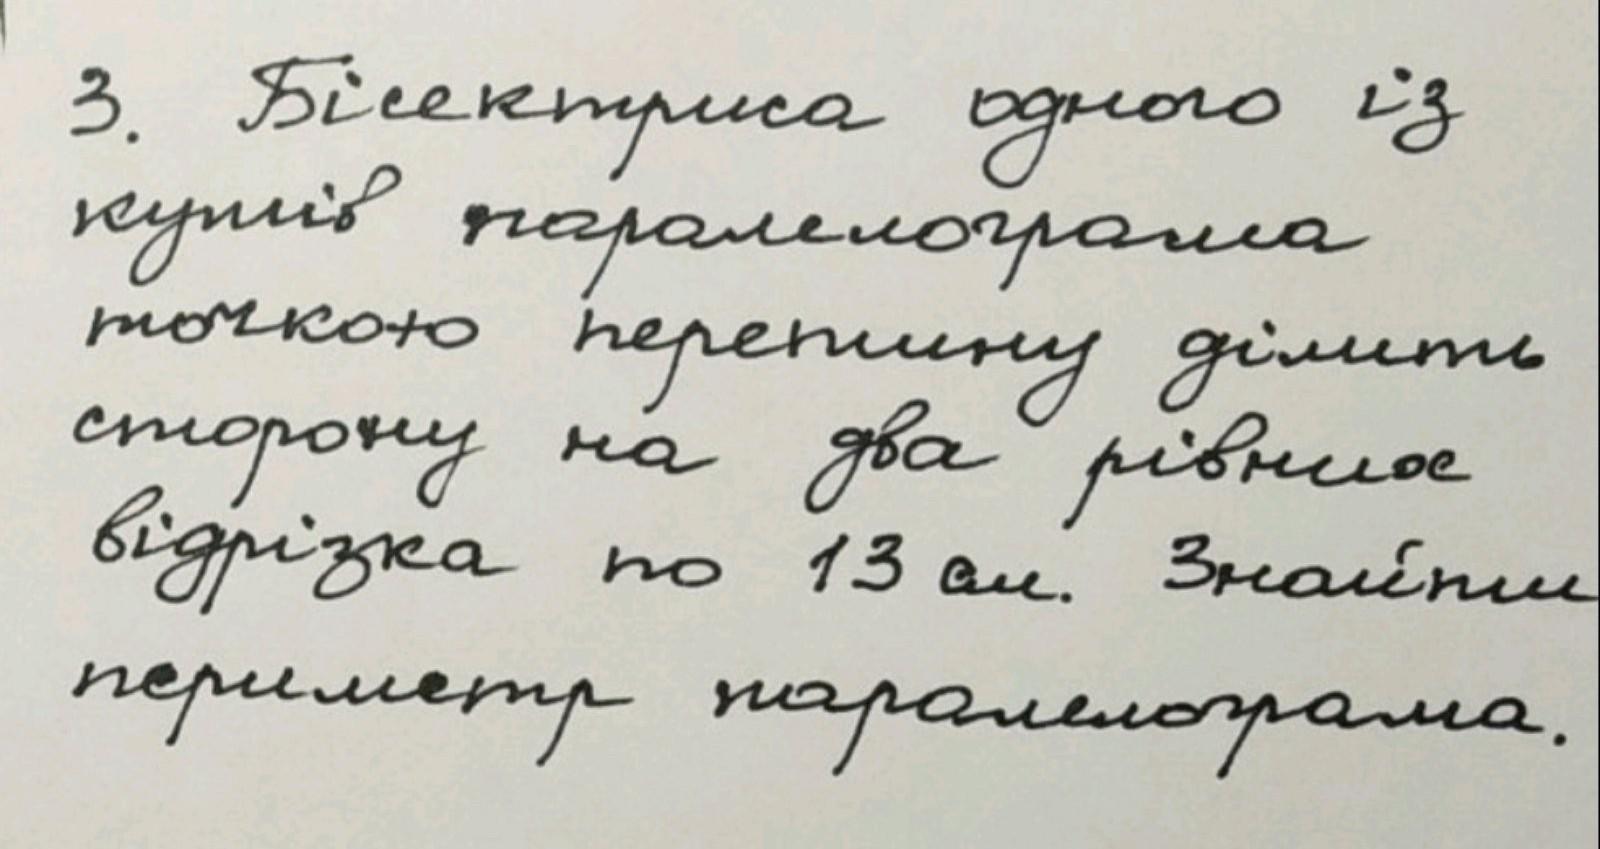 3. Бісектриса одного із
кутів паралелограма
точкою перетину ділить
сторону на два рівних
відрізка по 13 см. Знайти
периметр паралелограма.